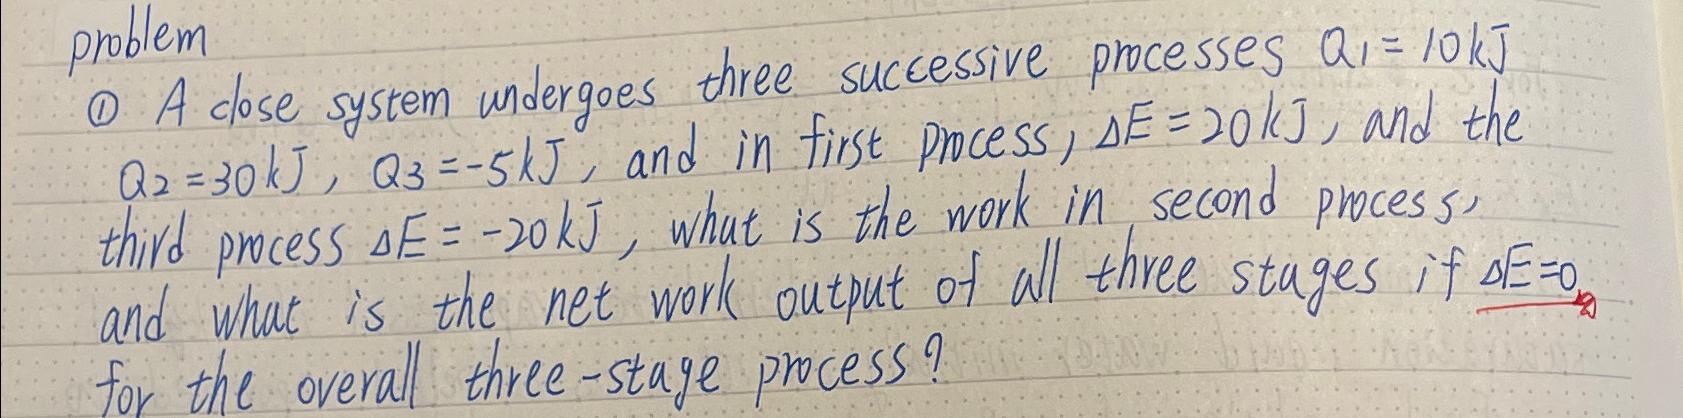 problem
① A close system undergoes three successive processes Q1 = 10kJ
Q2 = 30kJ, Q3 = -5kJ, and in first process, ΔE = 20kJ, and the
third process ΔE = -20kJ, what is the work in second process,
and what is the net work output of all three stages if ΔE=0
for the overall three-stage process?